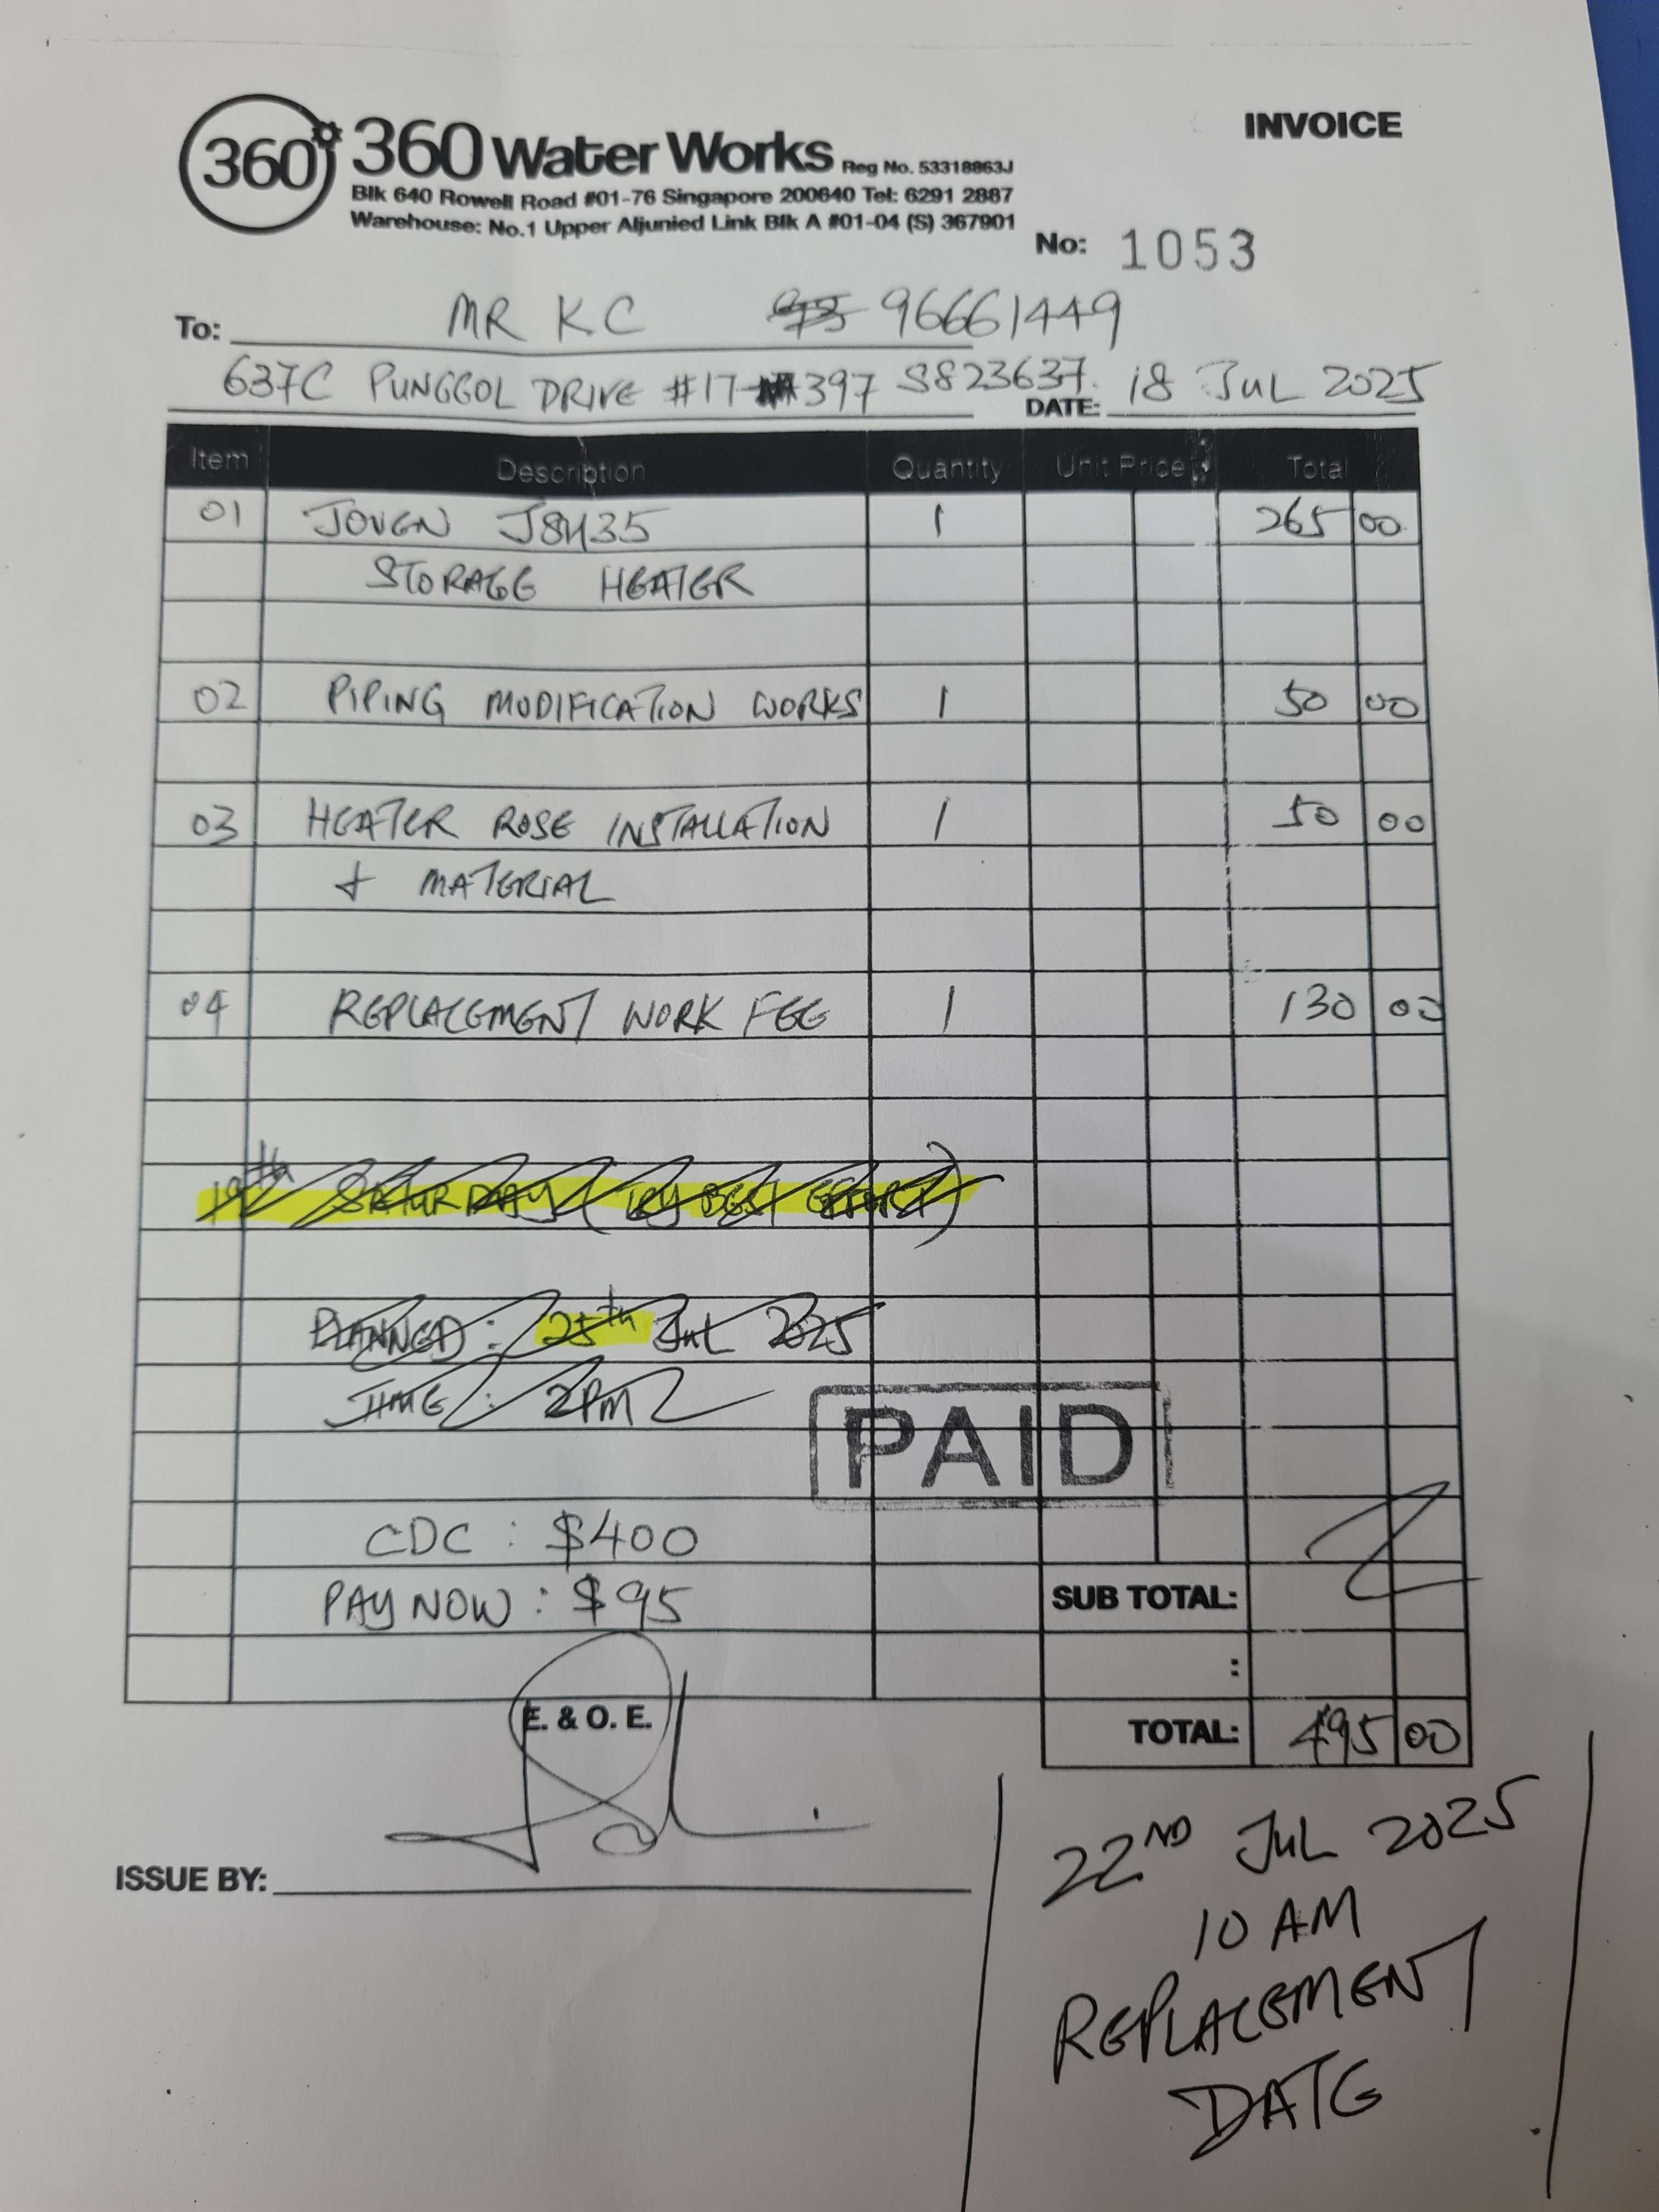 INVOICE
360° 360 Water Works Reg No. 53318863J
Blk 640 Rowell Road #01-76 Singapore 200640 Tel: 6291 2887
Warehouse: No.1 Upper Aljunied Link Blk A #01-04 (S) 367901
No: 1053
To: MR KC 96661449
637C PUNGGOL DRIVE #17-397 S823637
DATE: 18 JUL 2025
Item Description Quantity Unit Price Total
01 JOVEN JSH35 1 265 00
STORAGE HEATER
02 PIPING MODIFICATION WORKS 1 50 00
03 HEATER ROSE INSTALLATION 1 50 00
+ MATERIAL
04 REPLACEMENT WORK FEE 1 130 00
19th SATURDAY (TRY BEST EFFORT)
PLANNED: 25th JUL 2025
TIME: 2PM
PAID
CDC : $400
PAY NOW : $95
SUB TOTAL:
:
E. & O. E.
TOTAL: 495 00
ISSUE BY:
22ND JUL 2025
10 AM
REPLACEMENT
DATE